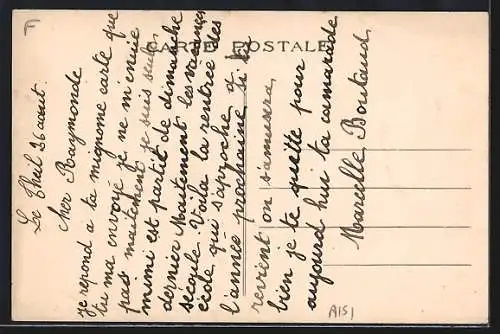 F
CARTE POSTALE
Le Theil 26 aout.
Cher Raymonde
je repond a ta mignome carte que
tu ma envoyé je ne m'ennuie
pas maitement je suis seule
mimi est partit de dimanche
dernier Maitement les vacances
secoule. Voila la rentrée des
école qui s'aproche
l'année prochaine si tu
revient on s'amusera
bien je te quitte pour
aujourd hui ta camarade
Marcelle Boutaud
A151